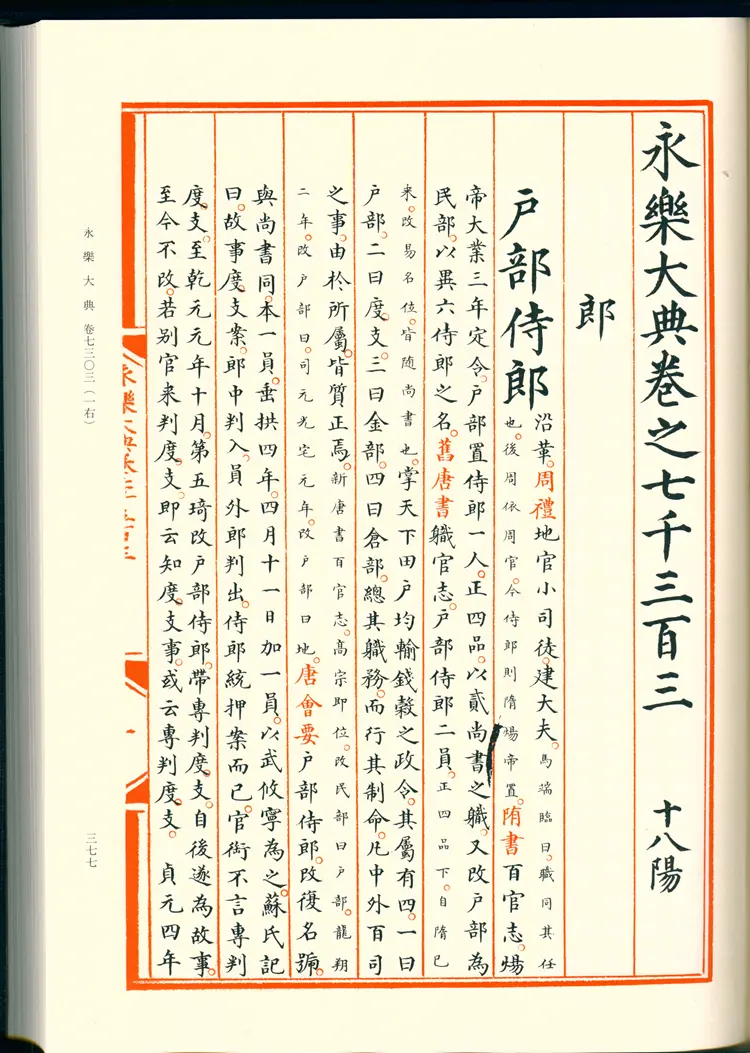 永樂大典卷之七千三百三 十八陽
郎
户部侍郎
沿革。周禮地官小司徒。建大夫。馬端臨曰。職同其任
也。後周依周官。今侍郎則隋煬帝置。隋書百官志。煬
帝大業三年定令。户部置侍郎一人。正四品。以貳尚書之職。又改户部為
民部。以異六侍郎之名。舊唐書職官志。户部侍郎二員。正四品下。自隋已
來。改易名位。皆隨尚書也。掌天下田户均輸錢穀之政令。其屬有四。一曰
户部。二曰度支。三曰金部。四曰倉部。總其職務。而行其制命。凡中外百司
之事。由於所屬。皆質正焉。新唐書百官志。高宗即位。改民部曰户部。龍朔
二年。改户部曰。司元光宅元年。改户部曰地。唐會要户部侍郎。改復名號。
與尚書同。本一員。垂拱四年。四月十一日加一員。以武攸寧為之。蘇氏記
曰。故事度支案。郎中判入。員外郎判出。侍郎統押案而已。官銜不言專判
度支。至乾元元年十月。第五琦改户部侍郎。帶專判度支。自後遂為故事。
至今不改。若别官來判度支。即云知度支事。或云專判度支。貞元四年
永樂大典 卷七三〇三（一右）
三七七